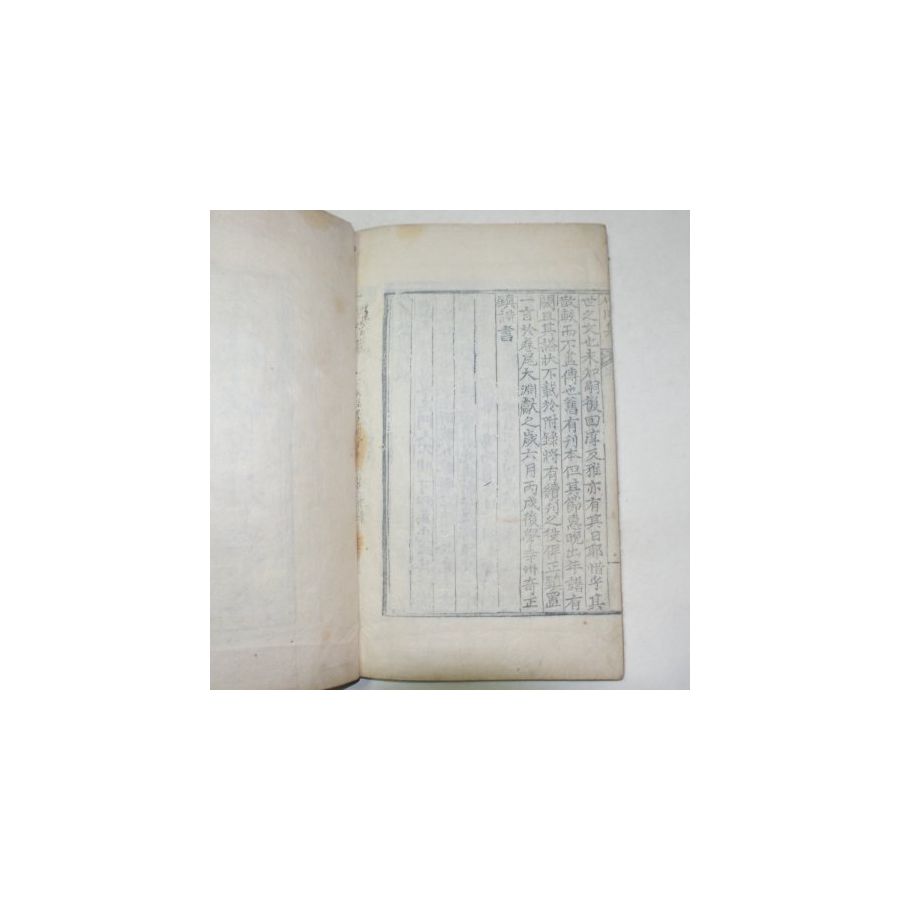 世之文也未如嗣復回淳反雅亦有其日耶惜乎其
散軼而不盡傳也舊有刊本但其節惠晚出年譜有
闕且其諡狀不載於附錄將有續刊之役俾正鎮置
一言於卷尾大淵獻之歲六月丙戌後學幸州奇正
鎮謹書